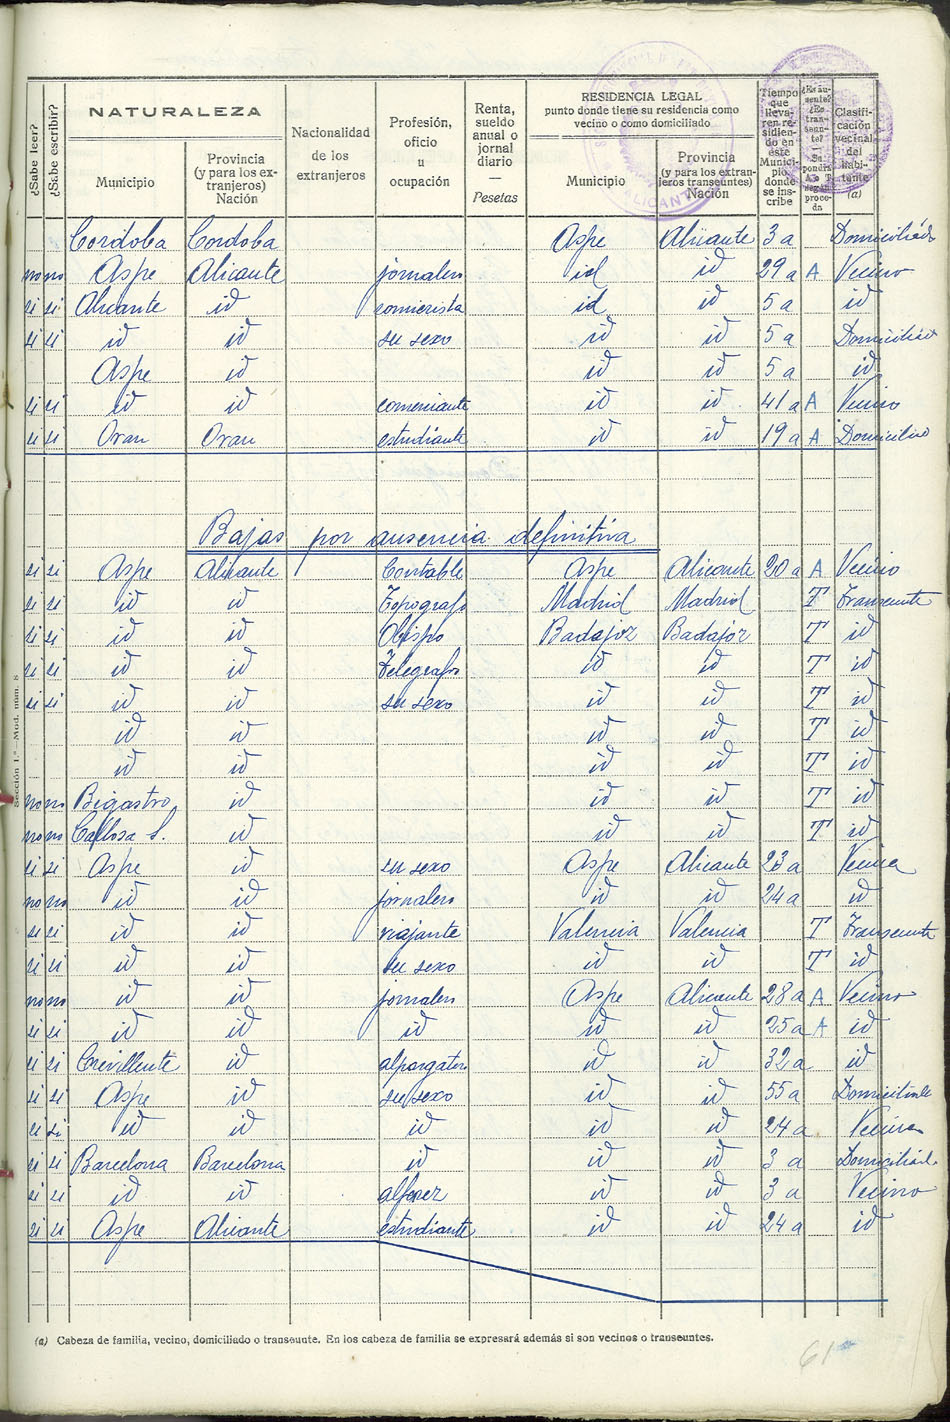 ¿Sabe leer?
¿Sabe escribir?
NATURALEZA
Municipio
Provincia (y para los extranjeros) Nación
Nacionalidad de los extranjeros
Profesión, oficio u ocupación
Renta, sueldo anual o jornal diario — Pesetas
RESIDENCIA LEGAL
punto donde tiene su residencia como vecino o como domiciliado
Municipio
Provincia (y para los extranjeros transeuntes) Nación
Tiempo que llevaren residiendo en este Municipio donde se inscribe
Clasificación vecinal del habitante (a)
Cordoba Cordoba Aspe Alicante 3 a
no no Aspe Alicante jornalero id id 29 a A Vecino
si si Alicante id comerista id id 5 a id
si si id id su sexo id id 5 a
Aspe id id id 5 a id
si si id id comerciante id id 41 a A Vecino
si si Oran Oran estudiante id id 19 a A
Bajas por ausencia definitiva
si si Aspe Alicante Contable Aspe Alicante 20 a A Vecino
si si id id Topografo Madrid Madrid T Transeunte
si si id id Obispo Badajoz Badajoz T id
si si id id Telegrafo id id T id
si si id id su sexo id id T id
id id id id T id
id id id id T id
no no Bigastro id id id T id
no no Callosa S. id id id T id
si si Aspe id su sexo Aspe Alicante 23 a Vecina
no no id id jornalero id id 24 a id
si si id id viajante Valencia Valencia T Transeunte
si si id id su sexo id id T id
no no id id jornalero Aspe Alicante 28 a A Vecino
si si id id id id id 25 a A id
si si Crevillente id alpargatero id id 32 a id
si si Aspe id su sexo id id 55 a
si si id id id id id 24 a Vecina
si si Barcelona Barcelona id id id 3 a
si si id id alferez id id 3 a Vecino
si si Aspe Alicante estudiante id id 24 a id
Sección 1.ª—Mod. núm. 8
(a) Cabeza de familia, vecino, domiciliado o transeunte. En los cabeza de familia se expresará además si son vecinos o transeuntes.
61
ALICANTE